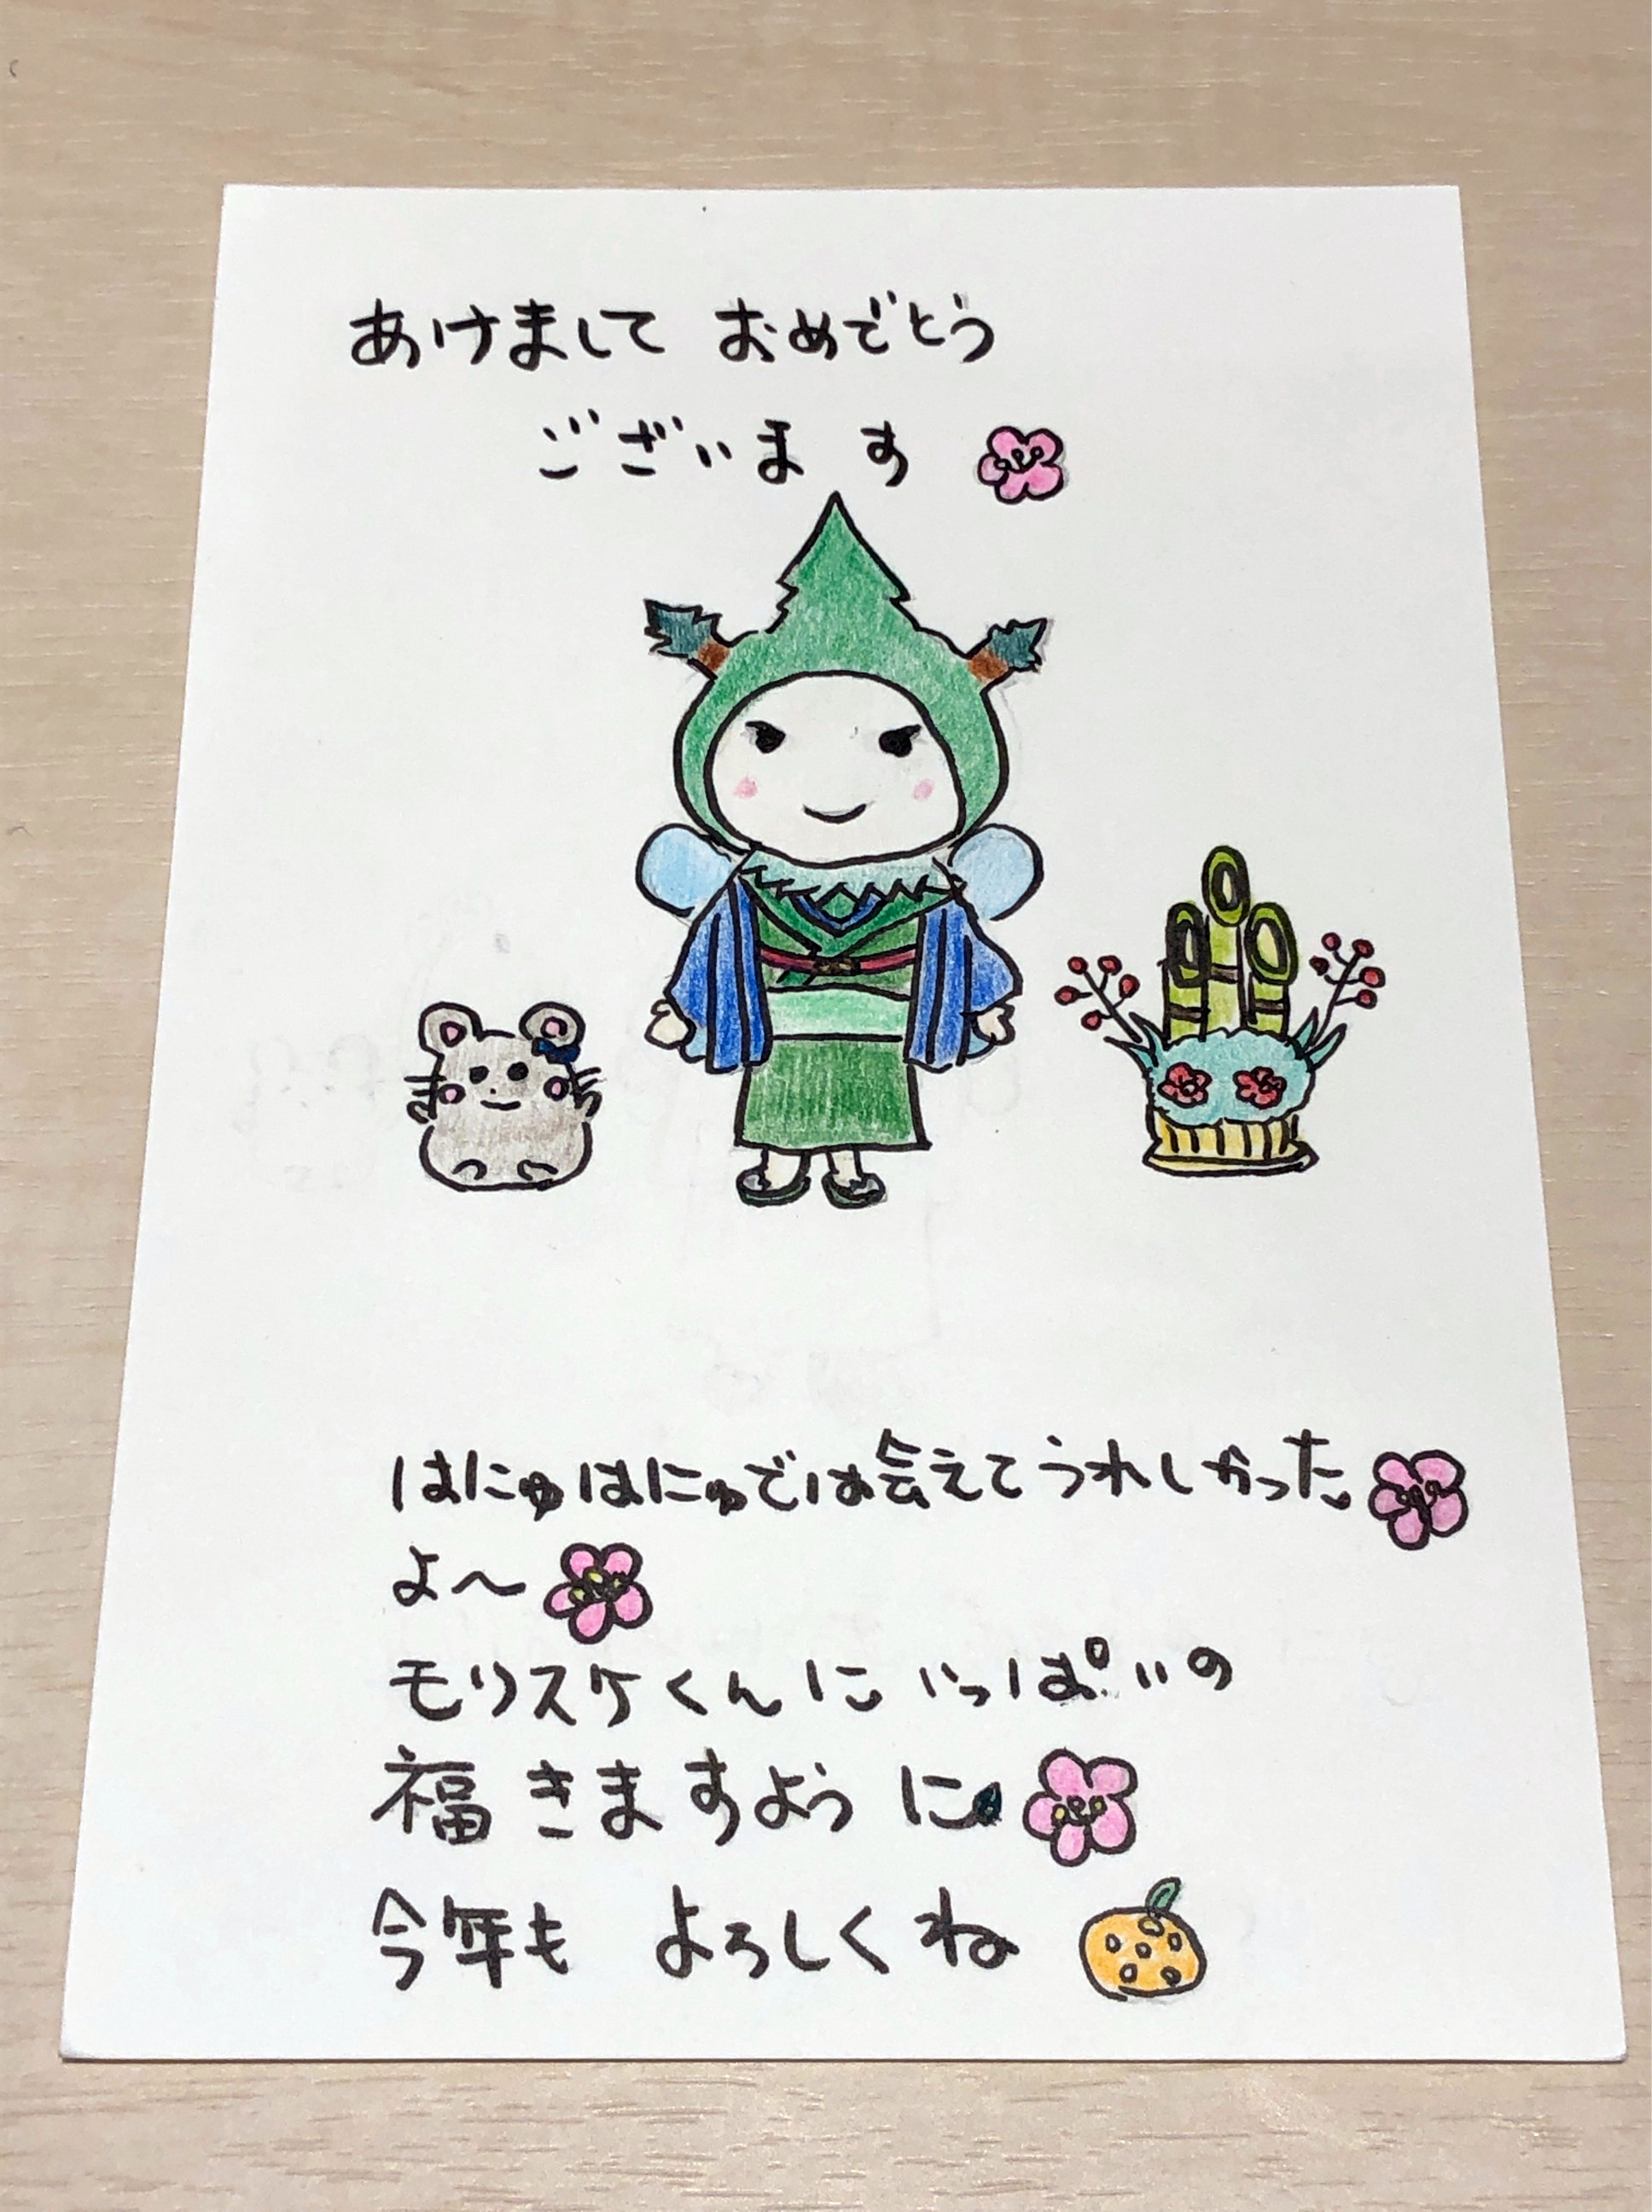 あけまして おめでとう
ございます
はにゅはにゅでは会えてうれしかった
よ〜
モリスケくんに いっぱいの
福きますように
今年も よろしくね